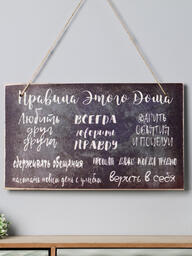 Правила Этого Дома
Любить друг друга
ВСЕГДА говорить ПРАВДУ
ДАРИТЬ ОБЪЯТИЯ И ПОЦЕЛУИ
сдерживать обещания
ПРОЩАТЬ ДАЖЕ КОГДА ТРУДНО
начинать новый день с улыбки
верить в себя